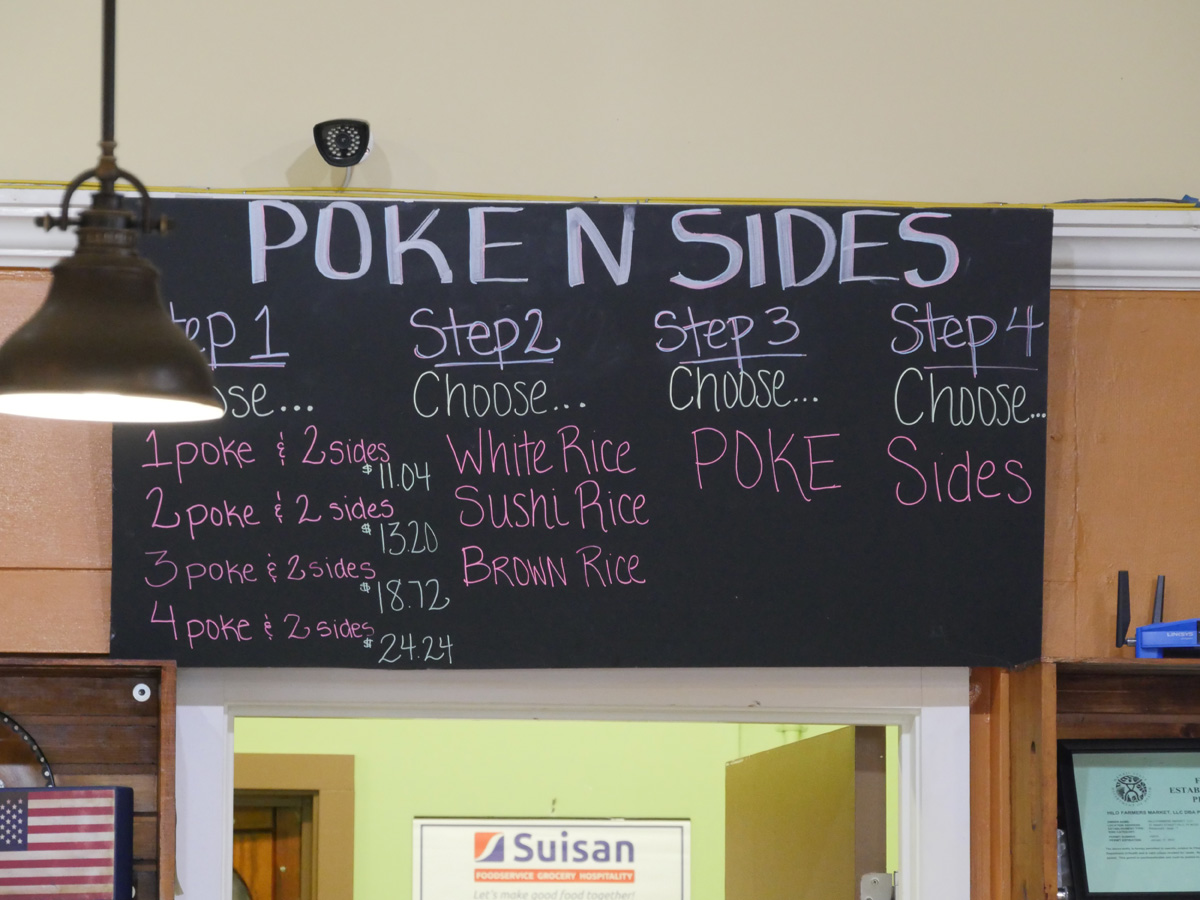 POKE N SIDES
Step 1
Choose...
1 poke & 2 sides
$11.04
2 poke & 2 sides
$13.20
3 poke & 2 sides
$18.72
4 poke & 2 sides
$24.24
Step 2
Choose...
White Rice
Sushi Rice
BROWN RICE
Step 3
Choose...
POKE
Step 4
Choose...
Sides
LINKSYS
Suisan
FOODSERVICE GROCERY HOSPITALITY
Let's make good food together!
ESTAB